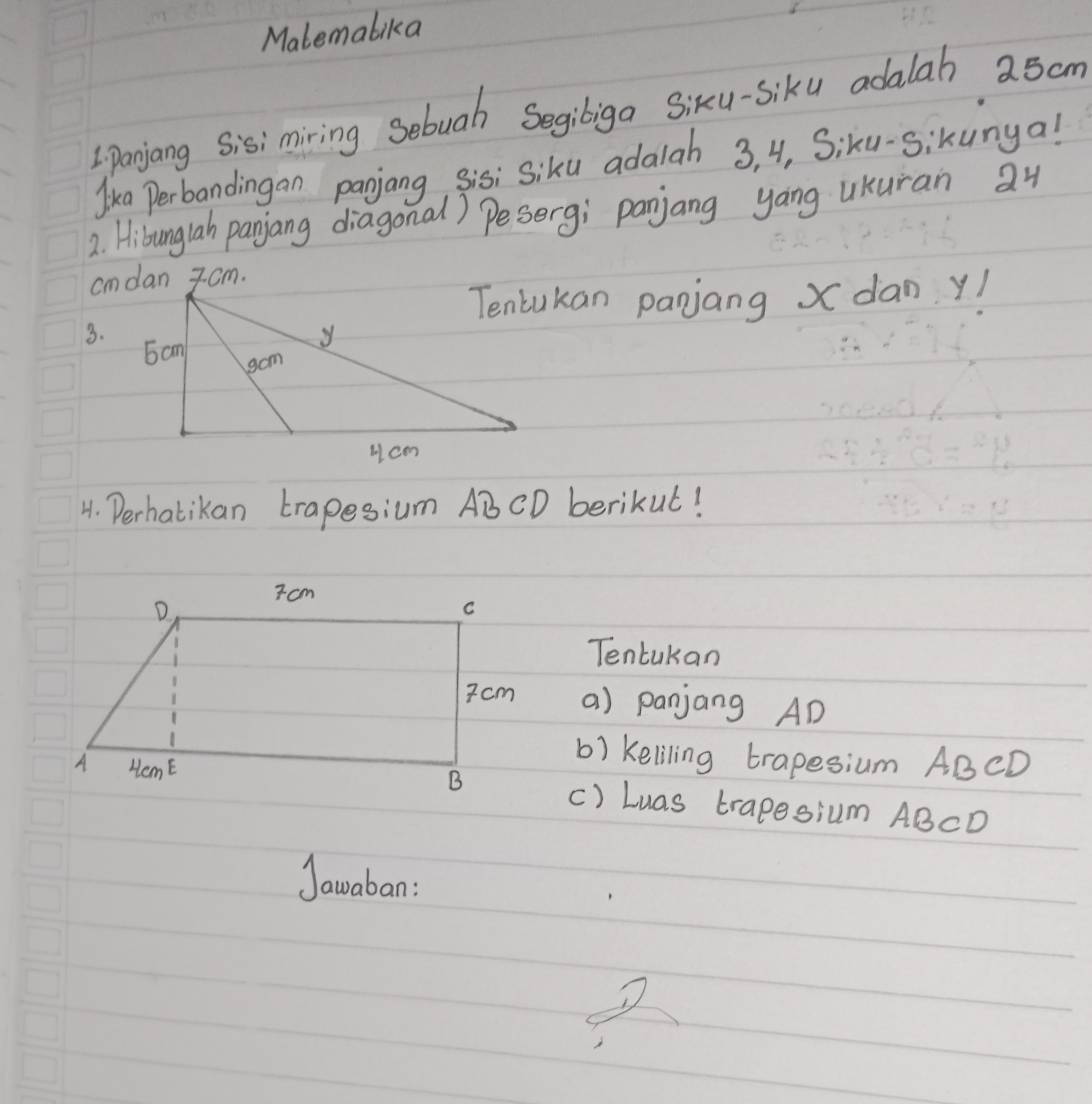 Matematika
1. Panjang Sisi miring Sebuah Segitiga Siku-Siku adalah 25cm
Jika Perbandingan panjang Sisi Siku adalah 3,4, Siku-Sikunya!
2. Hitunglah panjang diagonal) Pesergi panjang yang ukuran 24
cm dan 7cm.
Tentukan panjang x dan y!
3.
5cm
9cm
y
4cm
4. Perhatikan trapesium ABCD berikut!
7cm
D
C
Tentukan
7cm
a) panjang AD
b) Keliling trapesium ABCD
A
4cm
E
B
c) Luas trapesium ABCD
Jawaban: